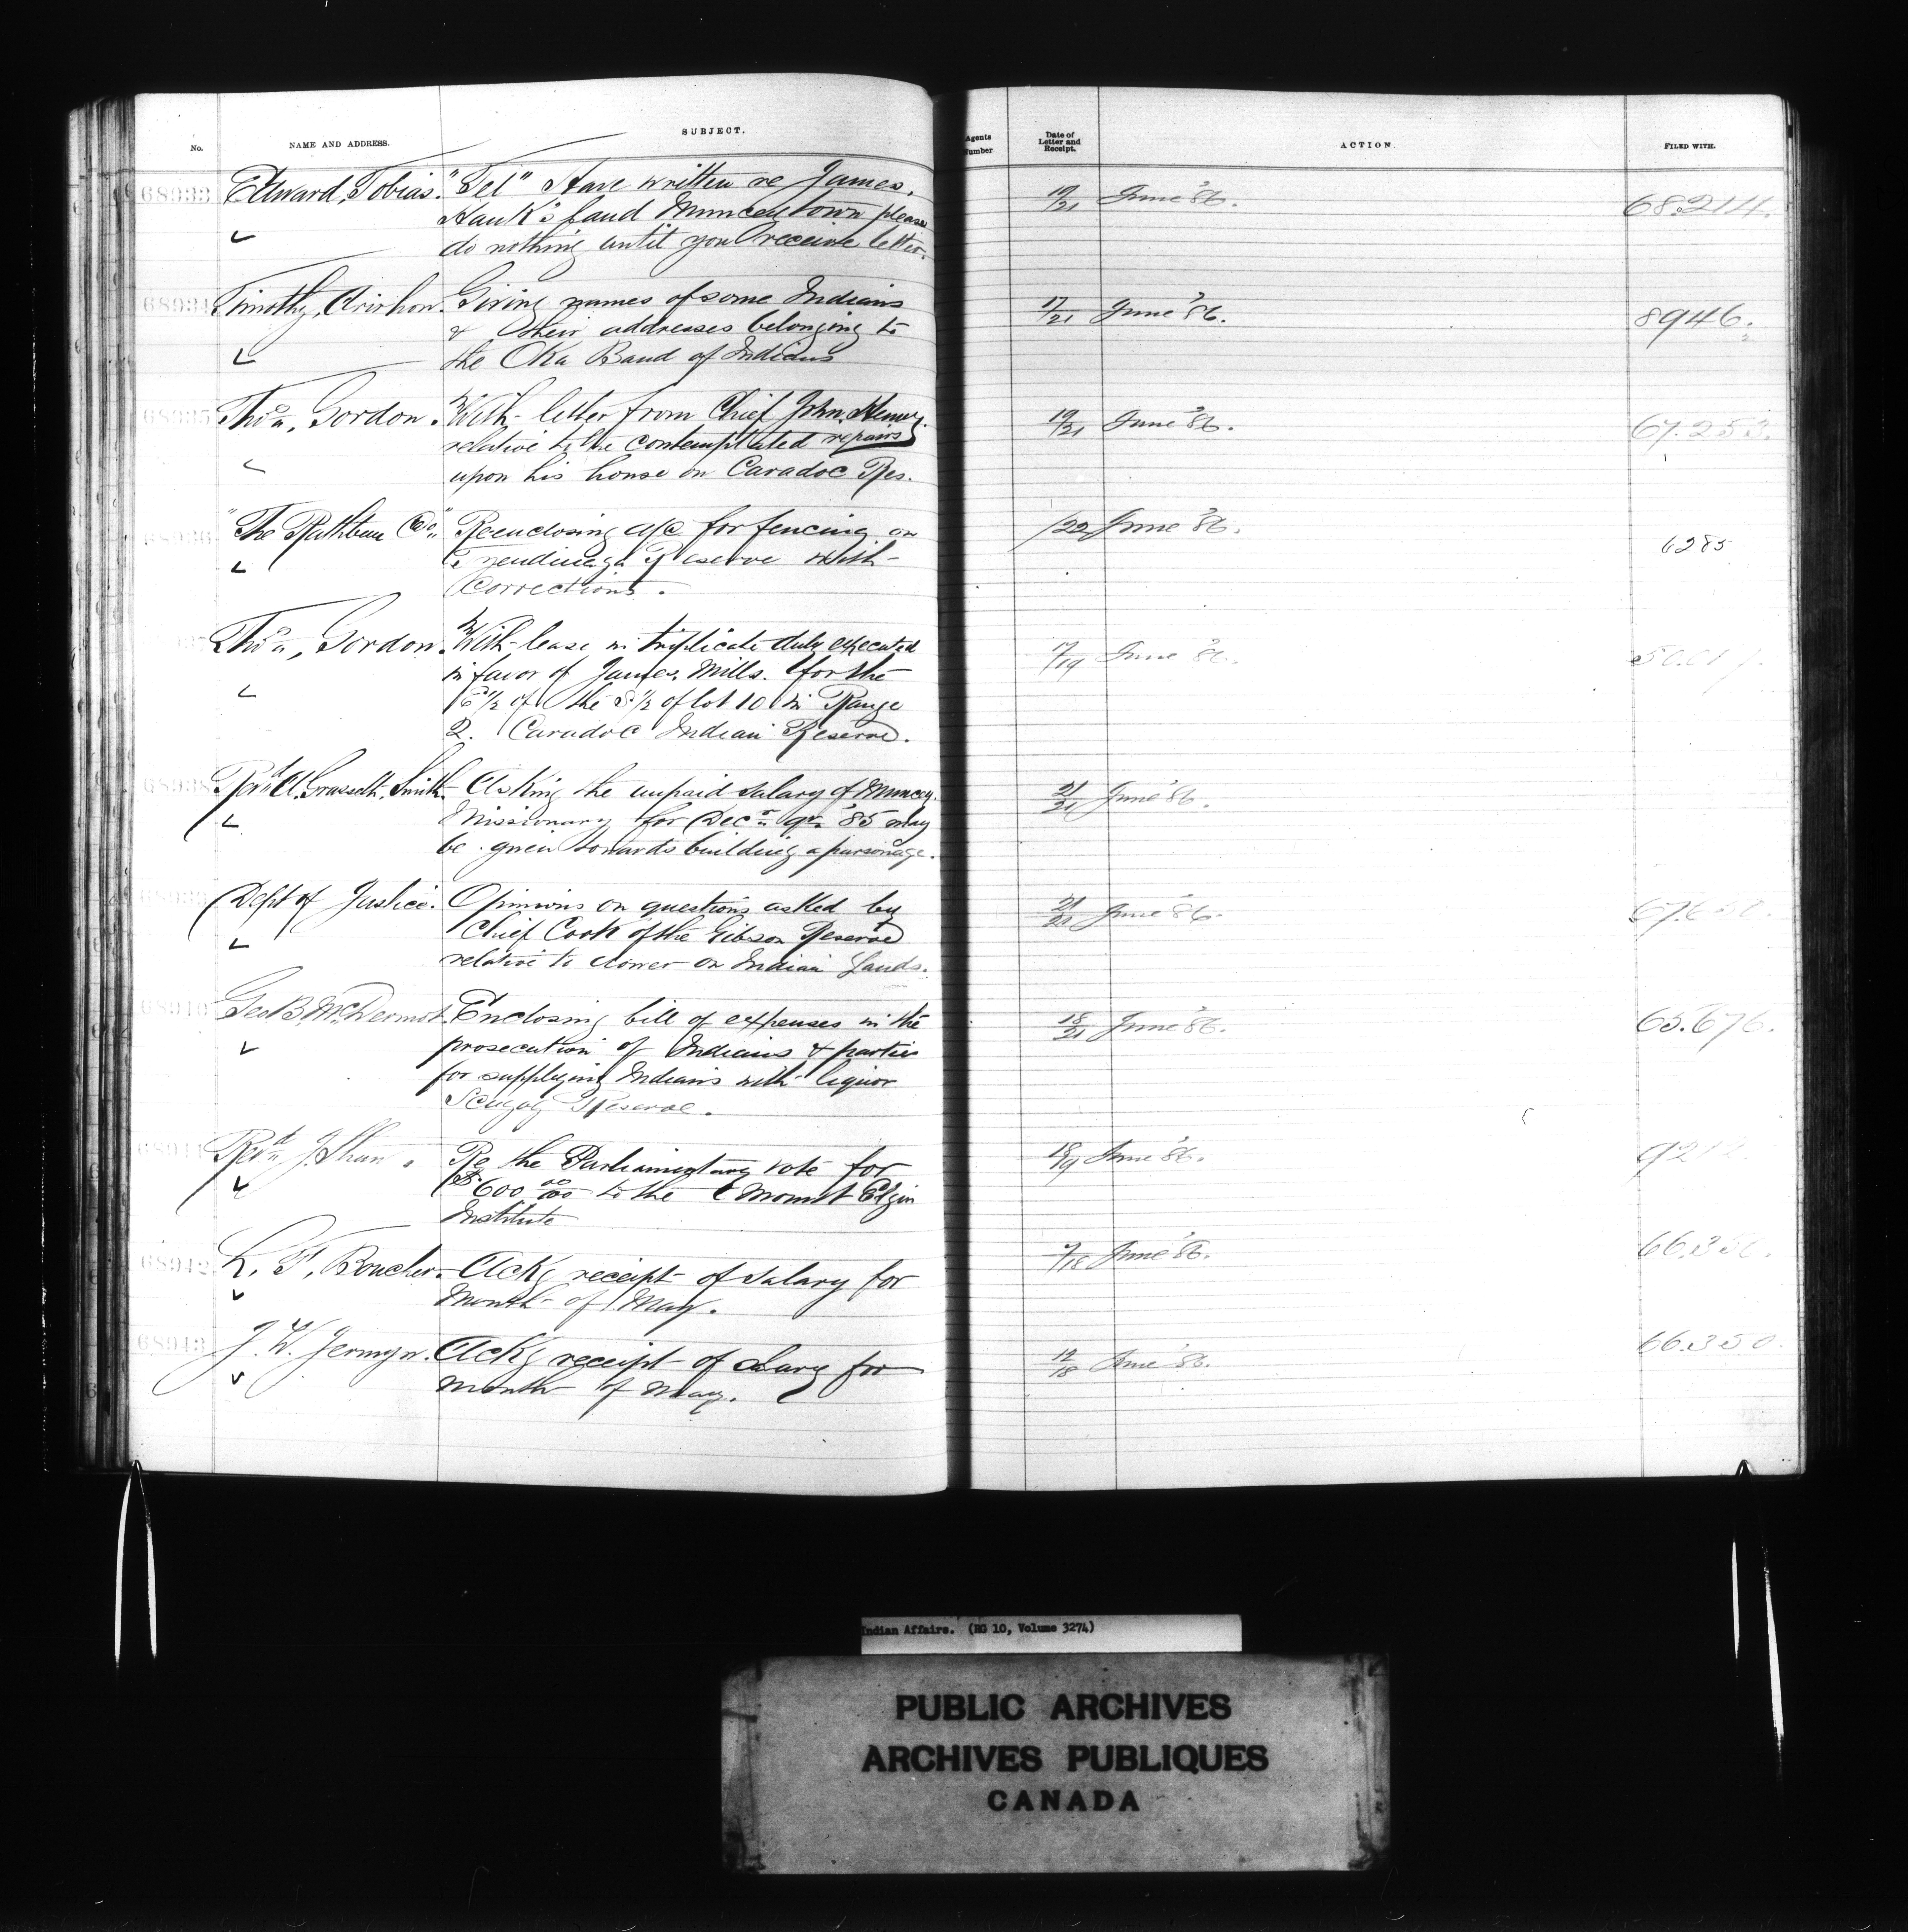 No.
NAME AND ADDRESS.
SUBJECT.
Agents Number
Date of Letter and Receipt.
ACTION.
FILED WITH.
68933 Edward Tobias. "Tel" Have written re James 19/21 June '86. 68.214.
Hank's land Munceytown please
do nothing until you receive letter.
68934 Timothy Arirhon. Giving names of some Indians 17/21 June '86. 8946.
& their addresses belonging to
the Oka Band of Indians
68935 Thos. Gordon. With letter from Chief John Henry 19/21 June '86. 67.253.
relative to the contemplated repairs
upon his house on Caradoc Res.
68936 "The Rathbun Co." Reenclosing a/c for fencing on /22 June '86. 6285
Tyendinaga Reserve with
Corrections.
Thos. Gordon. With lease in triplicate duly executed 17/19 June '86.
in favor of James Mills. for the
E 1/2 of the S 1/2 of lot 10 in Range
2. Caradoc Indian Reserve.
68938 Revd. A. Grassett Smith Asking the unpaid salary of Muncey 21/21 June '86.
Missionary for Decr. qr. '85 may
be given towards building a parsonage.
Dept of Justice. Opinions on questions asked by 21/21 June '86.
Chief Cook of the Gibson Reserve
relative to dower on Indian Lands.
68940 Geo B. McDermot. Enclosing bill of expenses in the 18/21 June '86. 65.676.
prosecution of Indians & parties
for supplying Indians with liquor
Scugog Reserve.
68941 Revd. J. Shaw. Re the Parliamentary vote for 18/19 June '86.
$600 00/100 to the Mount Elgin
Institute
68942 L. F. Boucher. Ackg receipt of salary for /18 June '86. 66.350.
Month of May.
68943 J. W. Jermyn. Ackg receipt of salary for 12/18 June '86. 66.350.
month of May.
Indian Affairs. (RG 10, Volume 3274)
PUBLIC ARCHIVES
ARCHIVES PUBLIQUES
CANADA